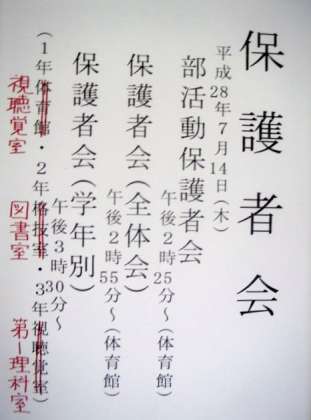 保護者会
平成28年7月14日(木)
部活動保護者会
午後2時25分～(体育館)
保護者会(全体会)
午後2時55分～(体育館)
保護者会(学年別)
午後3時30分～
(1年体育館・2年格技室・3年視聴覚室)
視聴覚室 図書室 第一理科室